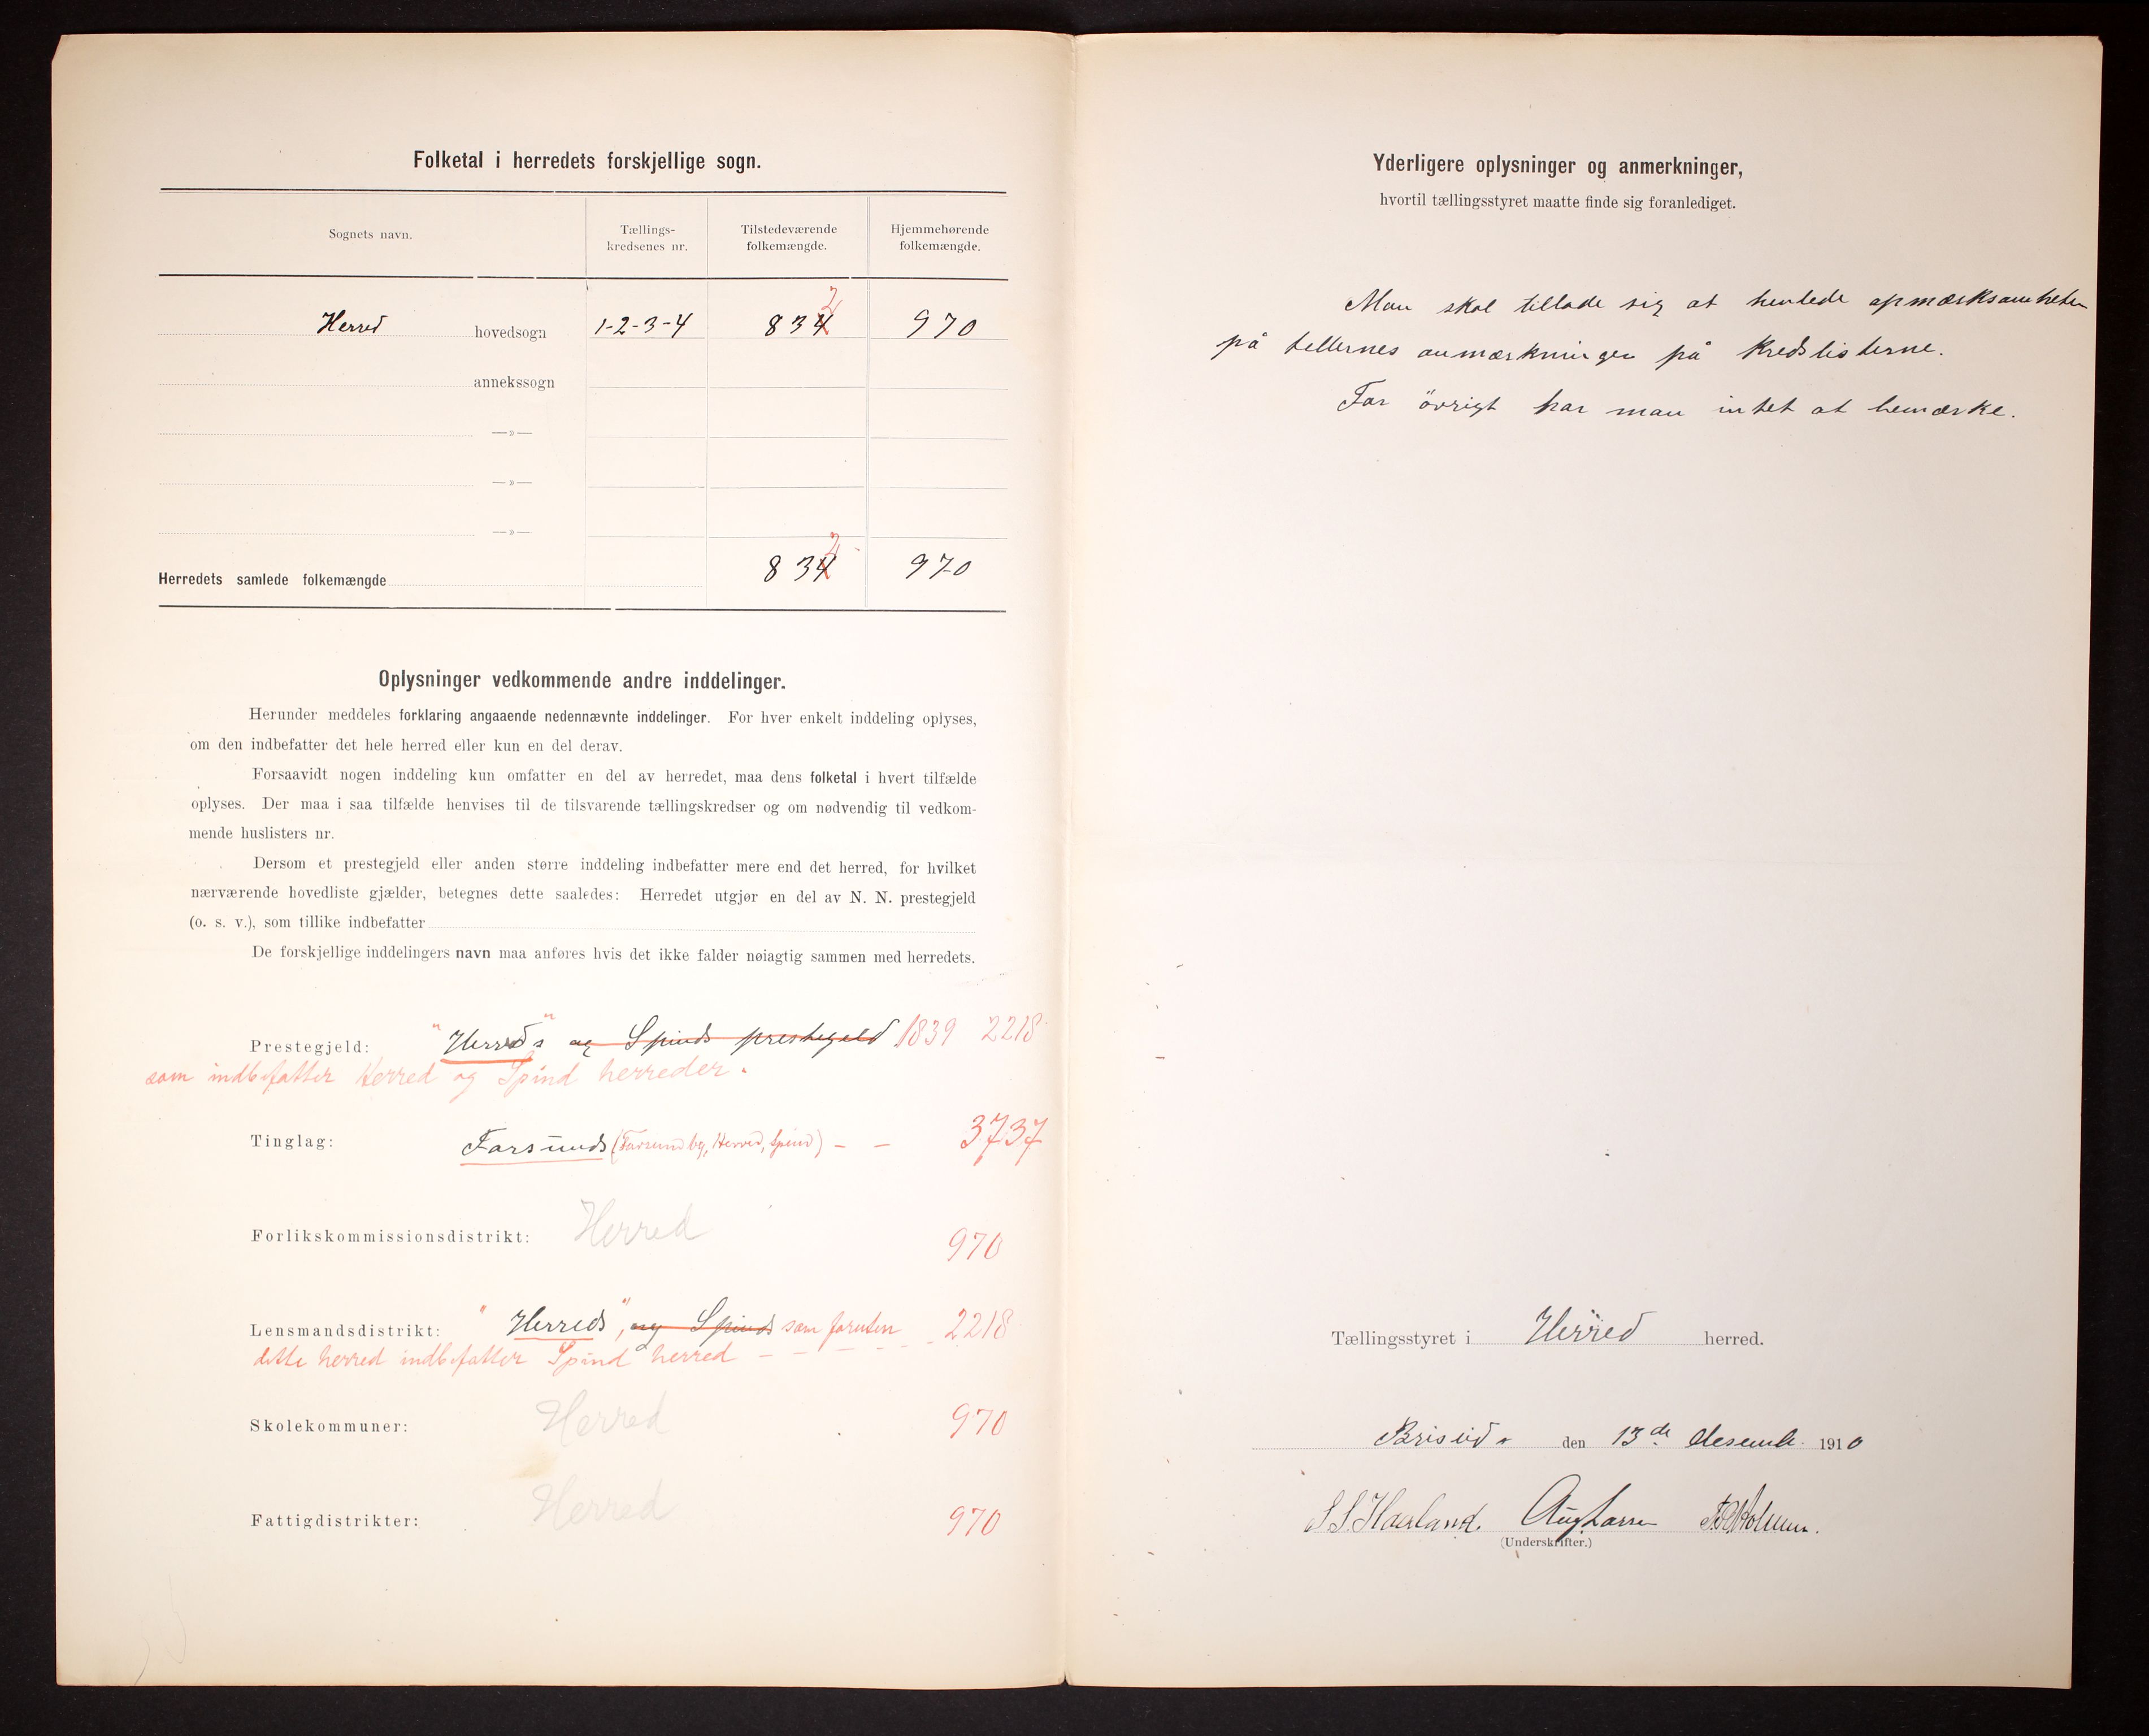 Folketal i herredets forskjellige sogn.
Sognets navn.
Tællings-
kredsenes nr.
Tilstedeværende
folkemængde.
Hjemmehørende
folkemængde.
Herred hovedsogn 1-2-3-4 834 2 970
annekssogn
—»—
—»—
—»—
Herredets samlede folkemængde 834 2 970
Oplysninger vedkommende andre inddelinger.
Herunder meddeles forklaring angaaende nedennævnte inddelinger. For hver enkelt inddeling oplyses,
om den indbefatter det hele herred eller kun en del derav.
Forsaavidt nogen inddeling kun omfatter en del av herredet, maa dens folketal i hvert tilfælde
oplyses. Der maa i saa tilfælde henvises til de tilsvarende tællingskredser og om nødvendig til vedkom-
mende huslisters nr.
Dersom et prestegjeld eller anden større inddeling indbefatter mere end det herred, for hvilket
nærværende hovedliste gjælder, betegnes dette saaledes: Herredet utgjør en del av N. N. prestegjeld
(o. s. v.), som tillike indbefatter
De forskjellige inddelingers navn maa anføres hvis det ikke falder nøiagtig sammen med herredets.
Prestegjeld: "Herreds" og Spinds prestegjeld 1839 2218
som indbefatter Herred og Spind herreder.
Tinglag: Farsunds (Farsund by, Herred, Spind) — — 3737
Forlikskommissionsdistrikt: Herred 970
Lensmandsdistrikt: "Herreds", og Spinds som foruten 2218
dette herred indbefatter Spind herred
Skolekommuner: Herred 970
Fattigdistrikter: Herred 970
Yderligere oplysninger og anmerkninger,
hvortil tællingsstyret maatte finde sig foranlediget.
Man skal tillade sig at henlede opmærksamheten
på tellernes anmærkninger på kredslisterne.
For övrigt har man intet at bemærke.
Tællingsstyret i Herred herred.
den 13de desemb. 1910
Aug Larsen
(Underskrifter.)